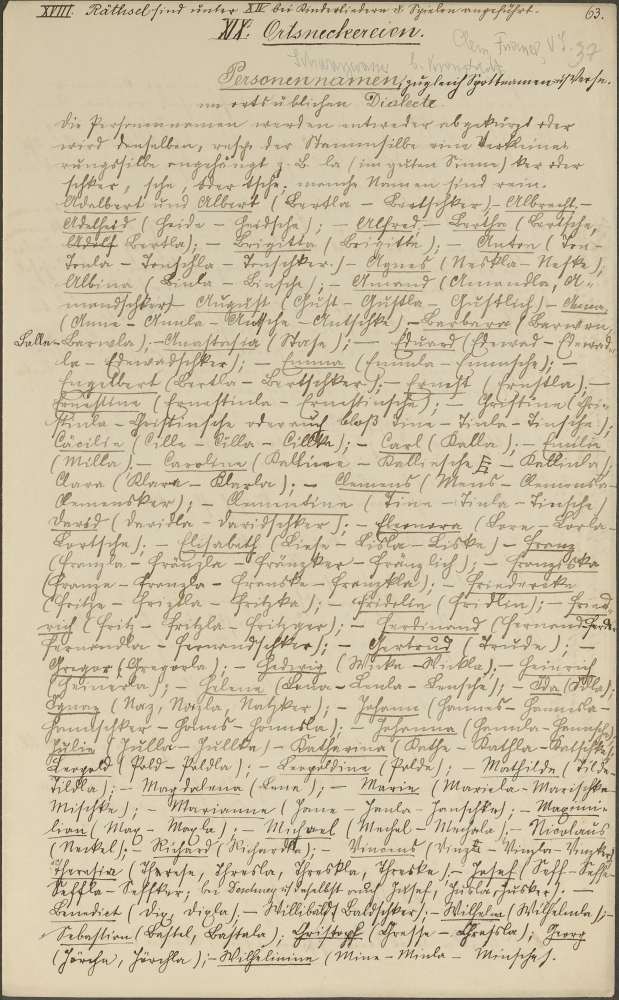 XVIII. Räthsel sind unter XIV bei Kinderliedern & Spielen angeführt.
63.
XIX. Ortsneckereien.
Clem. Franz, V. S. 37
Personennamen, zugleich Spottnamen in Verse.
im ortsüblichen Dialecte.
Die Personennamen werden entweder abgekürzt oder
wird denselben, resp. der Stammsilbe eine Verkleine-
rungssilbe angehängt z. B. la (im guten Sinne) ker oder
schker, sche, oder tsche; manche Namen sind rein.
Adelbert und Albert (Bertla – Bertschker) – Albrecht –
Adelheid (Heide – Heidsche); – Alfred – Bertha (Bertsche,
Adolf Bertla); – Brigitta (Brigitte); – Anton (Ton –
Tonla – Tonschla – Tonschker.) – Agnes (Neskla – Neske);
Albina (Binla – Binsche); – Amand (Amandla, A-
mandschker) – August (Gust – Gustla – Gustlich) – Anna
(Anne – Annla – Antsche – Antschke) – Barbara (Barwara,
Balla – Barwla); – Anastasia (Stase); – Eduard (Edewad – Edewad-
la – Edewadschker); – Emma (Emmla – Emmsche); –
Engelbert (Bertla – Bertschker); – Ernest (Ernstla); –
Ernestine (Ernestinla – Ernstinsche); – Christine (Chri-
stinla – Christinsche oder auch bloß Tine – Tinla – Tinsche);
Cäcilie (Cille – Cilla – Cillke); – Carl (Kalla); – Emilie
(Milla); – Caroline (Kalline – Kallinsche – Kallinla);
Clara (Klara – Klarla); – Clemens (Mens – Clemensla –
Clemensker); – Clementine (Tine – Tinla – Tinsche)
David (Davidla – Davidschker); – Eleonora (Lore – Lorla –
Lortsche); – Elisabeth (Liese – Lisla – Liske) – Franz
(Franzla – Fränzla – Fränzker – Fränzlich); – Franziska
(Franze – Franzla – Franske – Franzkla); – Friederike
(Fritze – Fritzla – Fritzka); – Fridolin (Fridlin); – Fried-
rich (Fritz – Fritzla – Fritzger); – Ferdinand (Fernand – Ferde
Fernandla – Fernandschker); – Gertrud (Trude); –
Gregor (Gregorla); – Hedwig (Wicka – Wickla); – Heinrich
(Heinerla); – Helene (Lena – Lenla – Lensche); – Ida (Idla);
Ignaz (Naz, Nazla, Natzker); – Johann (Hannes – Hannsla –
Hannschker – Honns – Honnsla); – Johanna (Hannla – Hannsche)
Julie (Julla – Jullka) – Katharina (Kathe – Kathla – Kattschke)
Leopold (Pold – Poldla); – Leopoldine (Polde); – Mathilde (Tilde –
Tildla); – Magdalena (Lene); – Marie (Mariela – Marischke
Mischke); – Marianne (Jane – Janla – Janschke); – Maximi-
lian (Max – Maxla); – Michael (Mechel – Mechala); – Nicolaus
(Neckel); – Richard (Richardla); – Vincens (Vinz – Vinzla – Vinzker)
Theresia (Therese, Thresla, Threskla, Threske) – Josef (Seff – Seffe –
Seffla – Seffker; bei daselbst auch Jussef, Jusla, Jusker). –
Benedict (Dix, Dixla). – Willibald (Baldschker). – Wilhelm (Wilhelmla); –
Sebastian (Bastel, Bastala); Christoph (Chresse – Chresla); Georg
(Jörche, Jörchla); – Wilhelmine (Mine – Minla – Minsche).